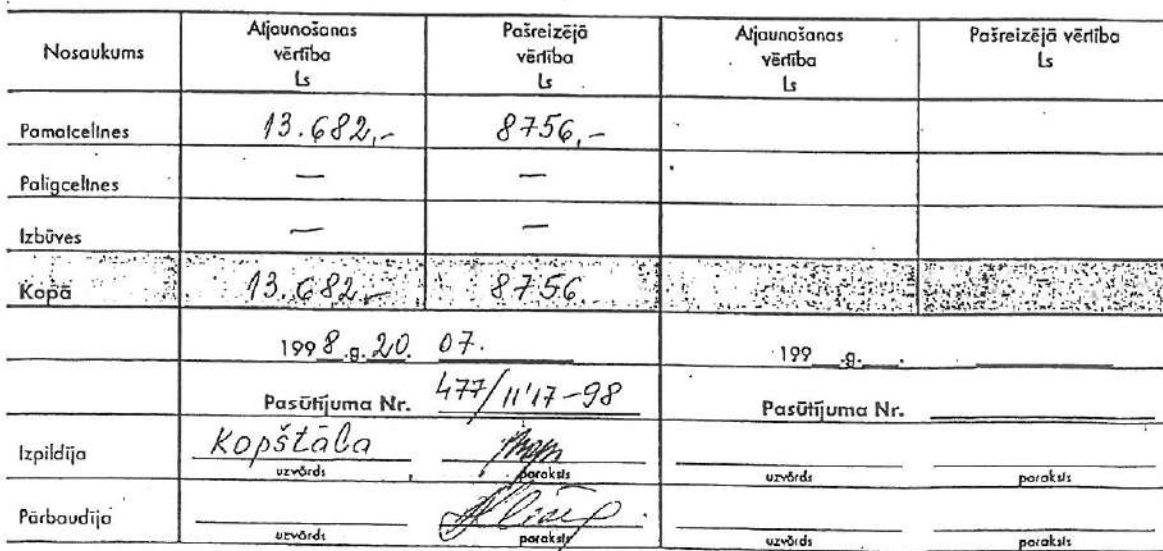 Nosaukums Atjaunošanas vērtība Ls Pašreizējā vērtība Ls Atjaunošanas vērtība Ls Pašreizējā vērtība Ls
Pamatceltnes 13.682,- 8756,-
Palīgceltnes — —
Izbūves — —
Kopā 13.682,- 8756
1998.g. 20. 07. 199 .g. .
Pasūtījuma Nr. 477/11'17-98 Pasūtījuma Nr.
Izpildīja Kopštāla
uzvārds paraksts uzvārds paraksts
Pārbaudīja
uzvārds paraksts uzvārds paraksts